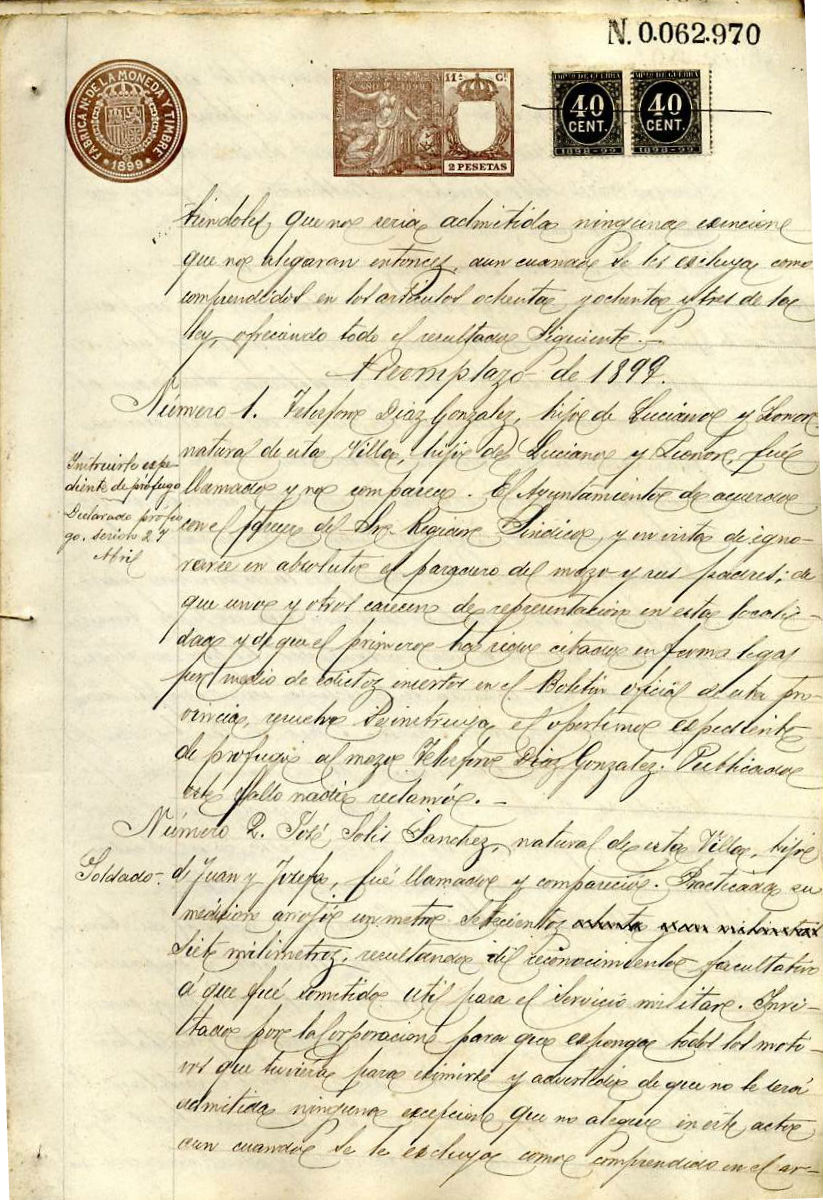 N. 0.062.970
FABRICA Nal. DE LA MONEDA Y TIMBRE
1899
11ª Cl.
2 PESETAS
IMPto DE GUERRA
40
CENT.
1898-99
IMPto DE GUERRA
40
CENT.
1898-99
tiendoles, que no seria admitida ninguna exencion
que no alegaran entonces, aun cuando se les excluya como
comprendidos en los articulos ochenta y ochenta y tres de la
ley, ofreciendo todo el resultado siguiente.—
Reemplazo de 1899.
Número 1. Telesforo Diaz Gonzalez, hijo de Luciano y Leonor,
natural de esta Villa, hijo de Luciano y Leonor, fué
llamado y no comparece. El Ayuntamiento de acuerdo
con el parecer del Sr. Regidor Sindico, y en vista de igno-
rarse en absoluto el paradero del mozo y sus padres; de
que unos y otros carecen de representación en esta locali-
dad y de que el primero ha sido citado en forma legal
por medio de edictos insertos en el Boletin oficial de esta pro-
vincia, resuelve se instruya el oportuno expediente
de profugo al mozo Telesforo Diaz Gonzalez. Publicado
este fallo nadie reclamó.—
Instruirle expe-
diente de prófugo
Declarado prófu-
go, sesion 27
Abril
Número 2. José Solis Sanchez, natural de esta Villa, hijo
Soldado-
de Juan y Josefa, fué llamado y compareció. Practicada su
medicion arrojó un metro setecientos
siete milimetros, resultando del reconocimiento facultativo
a que fué sometido util para el servicio militar. Invi-
tado por la Corporacion para que exponga todos los moti-
vos que tuviera para eximirse y advertido de que no le será
admitida ninguna excepcion que no alegue en este acto
aun cuando se le excluya como comprendido en el ar-